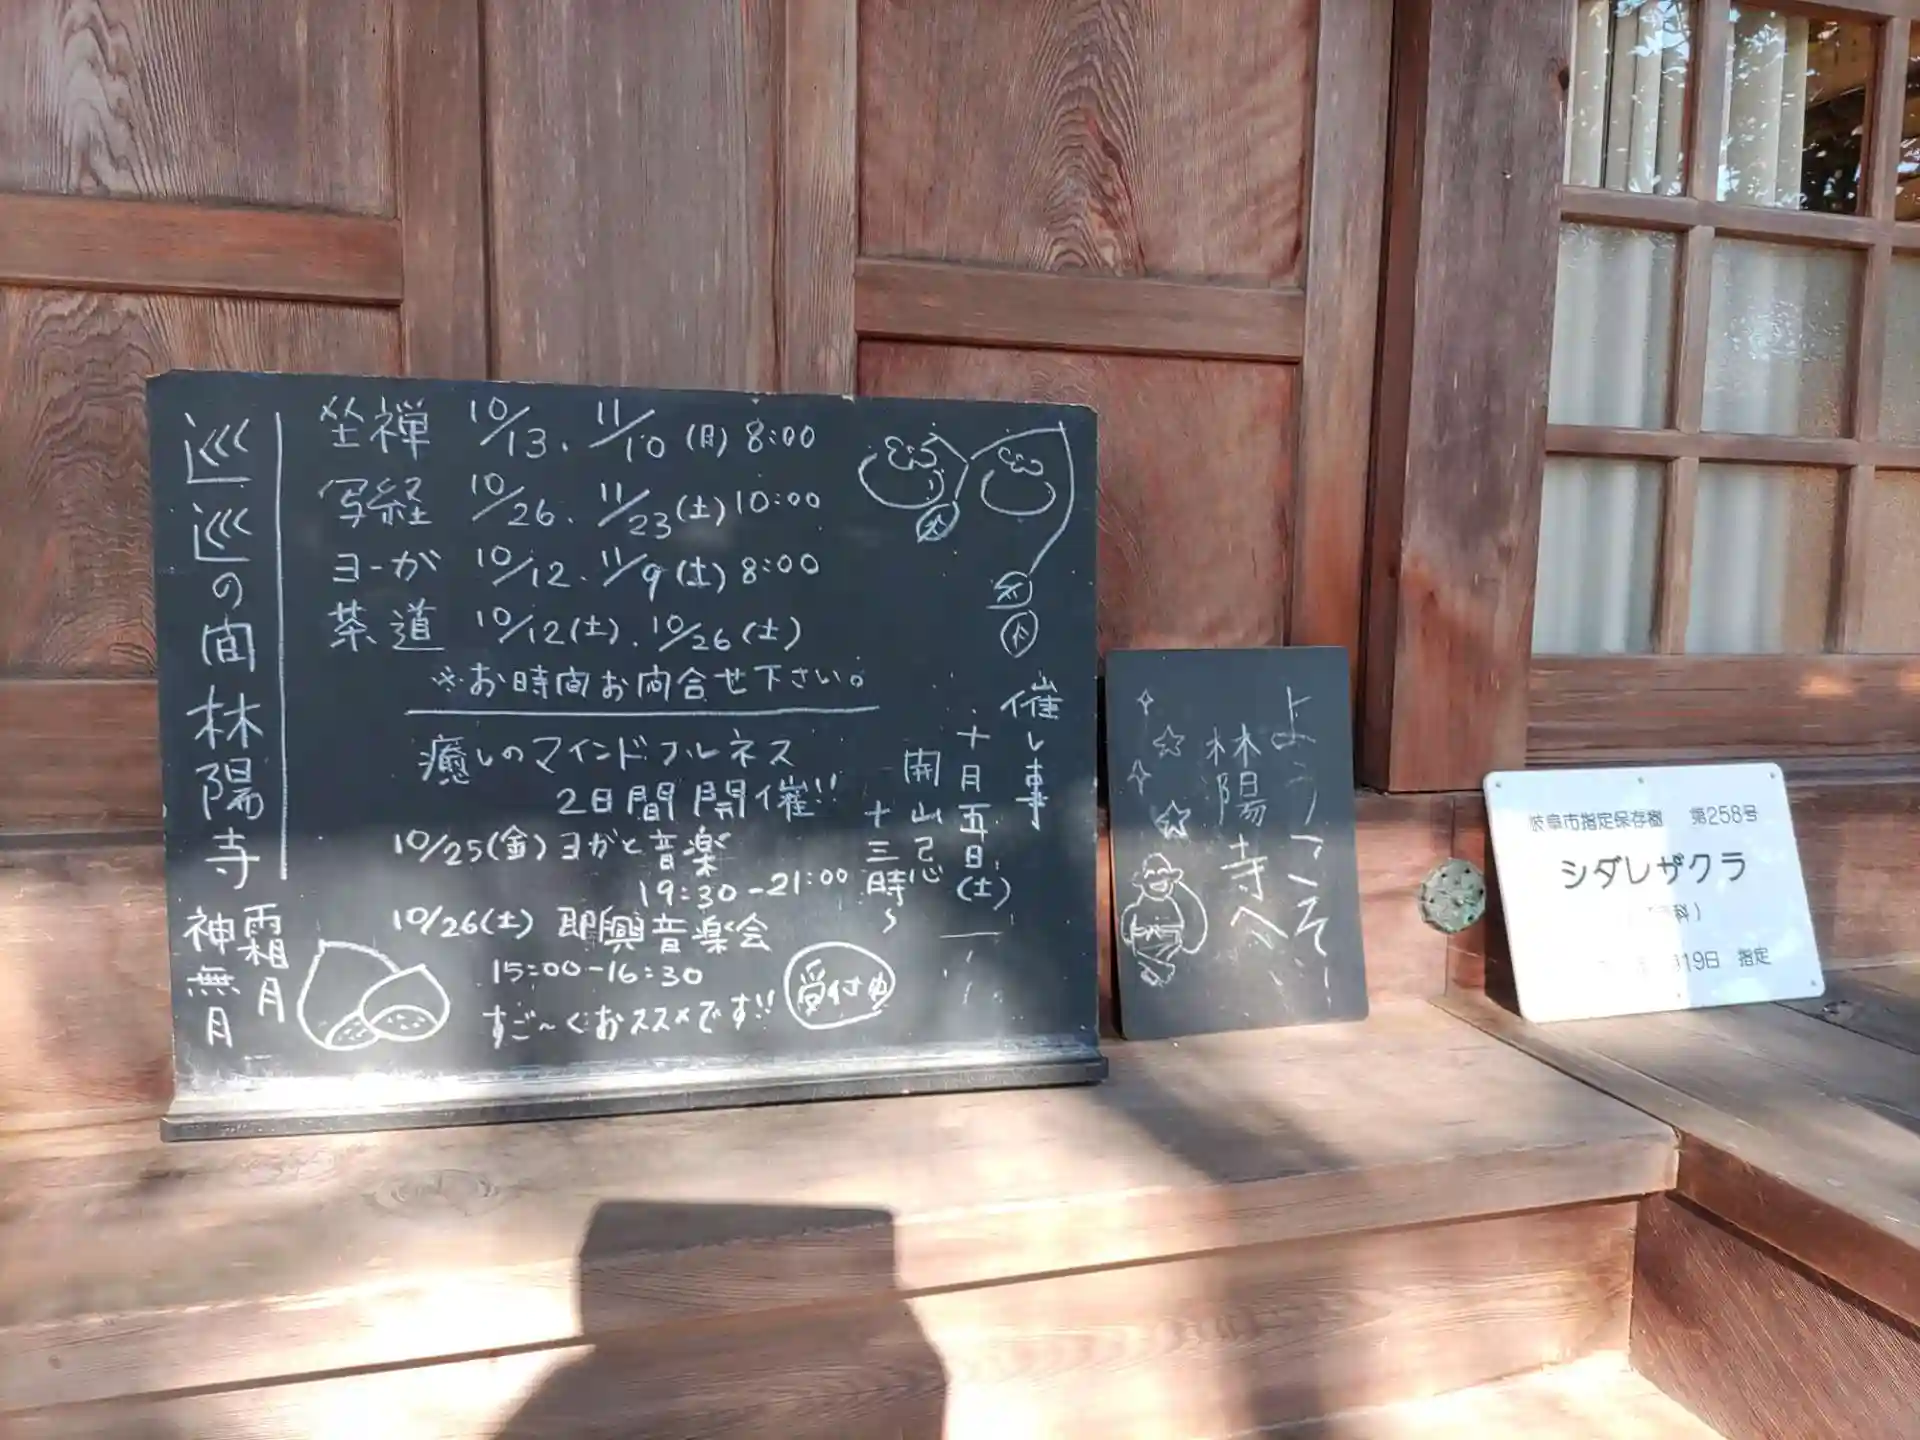 巡巡の間 林陽寺
霜月
神無月
坐禅 10/13. 11/10 (日) 8:00
写経 10/26. 11/23 (土) 10:00
ヨーガ 10/12. 11/9 (土) 8:00
茶道 10/12 (土). 10/26 (土)
※お時間お問合せ下さい。
癒しのマインドフルネス
2日間開催!!
10/25(金) ヨガと音楽
19:30-21:00
10/26(土) 即興音楽会
15:00-16:30
すご〜くおススメです!!
受付中
催し事
十月五日(土)
開山忌
十三時〜
ようこそ!!
林陽寺へ
岐阜市指定保存樹 第258号
シダレザクラ
科)
19日 指定